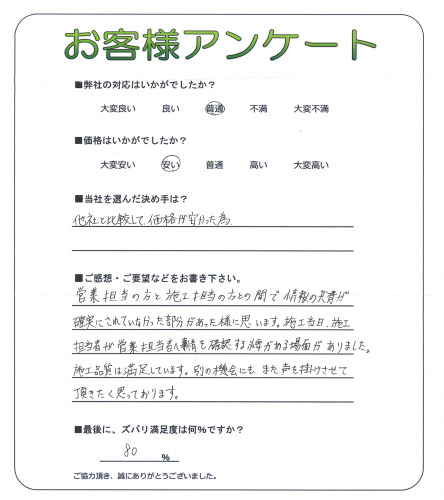 お客様アンケート
■弊社の対応はいかがでしたか？
大変良い 良い 普通 不満 大変不満
■価格はいかがでしたか？
大変安い 安い 普通 高い 大変高い
■当社を選んだ決め手は？
他社と比較して、価格が安かった為
■ご感想・ご要望などをお書き下さい。
営業担当の方と施工担当の方との間で情報の共有が
確実にされていなかった部分があった様に思います。施工当日、施工
担当者が営業担当者へ事情を確認する場がある場面がありました。
施工品質は満足しています。別の機会にも、また声を掛けさせて
頂きたく思っております。
■最後に、ズバリ満足度は何%ですか？
80 %
ご協力頂き、誠にありがとうございました。